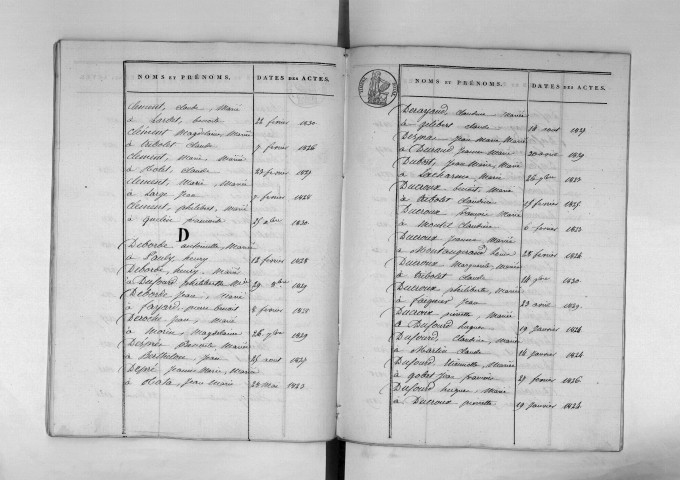 NOMS ET PRÉNOMS. DATES DES ACTES.
Clement, claude, Marié
à Lardet, benoite 22 fevrier 1830
Clement Magdelaine, Mariée
à Aubolet Claude 7 fevrier 1826
Clement, Marie, Mariée
à claude 23 fevrier 1829
Clement, Marie, Mariée
à Large Jean 9 fevrier 1825
Clement, philibert, Marié
à francoise 25 9bre 1830
D
Deborbe antoinette Mariée
à Pauly henry 12 fevrier 1828
Deborbe, henry, Marié
à Dufourd philiberte 29 8bre 1829
Deborbe Jean, Marié
à Fayard, benoit 8 fevrier 1825
Deroche Jean, Marié
à Morin, Magdelaine 26 9bre 1829
Desprée Benoite Mariée
à Berthelon Jean 25 aout 1827
Depré, Jeanne Marie, Mariée
à Jean Marie 20 Mai 1823
NOMS ET PRÉNOMS. DATES DES ACTES.
Claudine Mariée
à gelibert claude 18 aout 1829
Jean Marie, Marié
à Durand Jeanne Marie 20 avril 1829
Dubost, Jean Marie, Marié
à Lacharme Marie 26 9bre 1823
Ducroux benoit, Marié
à Aubolet Claudine 15 fevrier 1825
Ducroux françois Marié
à Montel Claudine 6 fevrier 1823
Ducroux Jeanne Mariée
à 28 fevrier 1824
Ducroux Marguerite, Mariée
à Aubolet claude 18 9bre 1830
Ducroux philiberte, Mariée
à Jean 23 avril 1829
Ducroux pierrette, Mariée
à Dufourd hugues 19 Janvier 1824
Dufourd, Claudine, Mariée
à Martin Claude 14 janvier 1824
Dufourd Etiennette, Mariée
à gobet Jean francois 29 fevrier 1826
Dufourd hugues, Marié
à Ducroux pierrette 19 Janvier 1824